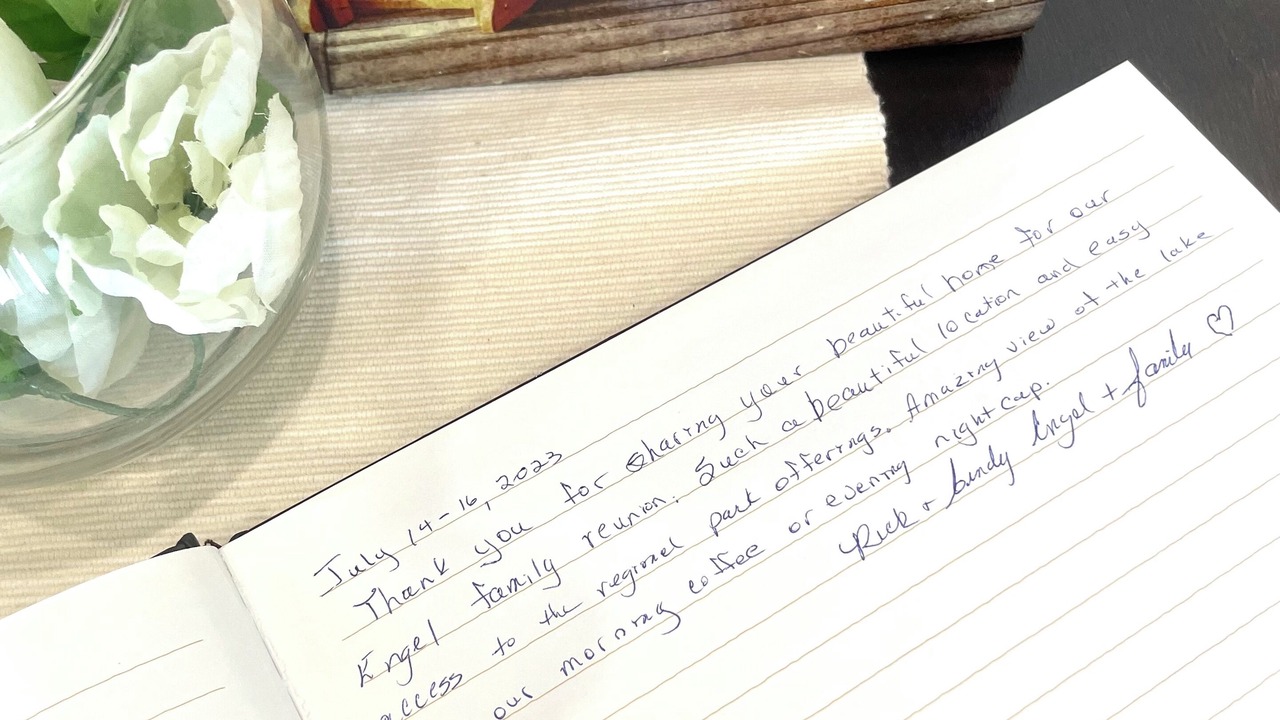 July 14-16, 2023
Thank you for sharing your beautiful home for our
Engel family reunion. Such a beautiful location and easy
access to the regional park offerings. Amazing view of the lake
our morning coffee or evening nightcap.
Rick + Cindy Engel + family ♡